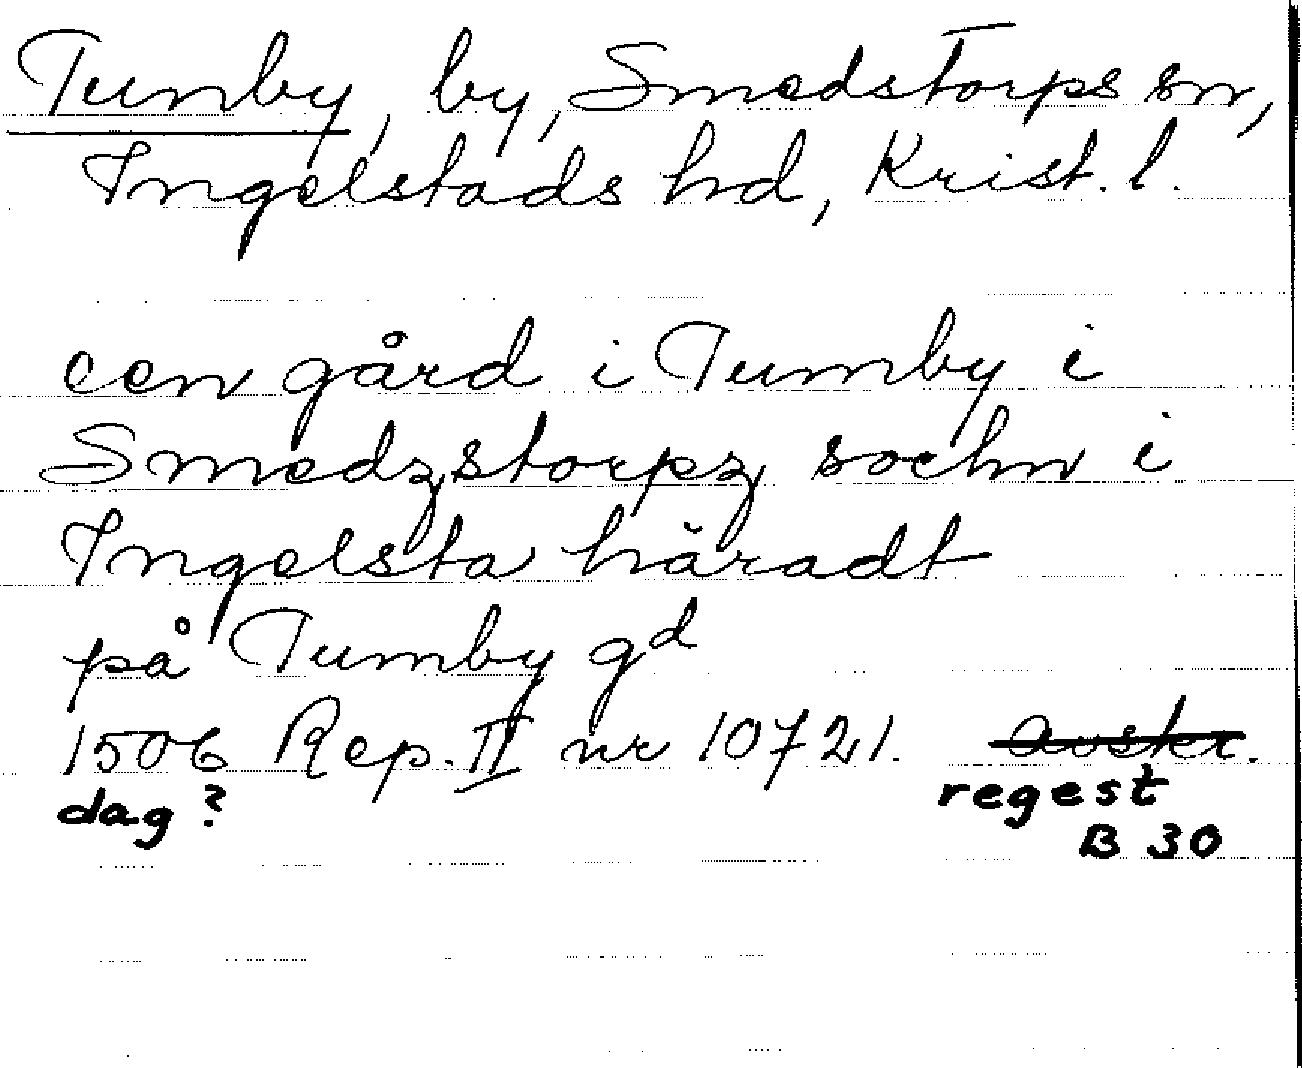 Tumby, by, Smedstorps sn,
Ingelstads hd, Krist. l.
een gård i Tumby i
Smedzstorpz sochn i
Ingelsta häradt
på Tumby gd
1506 Rep. II nr 10721. avskr.
dag? regest
B 30